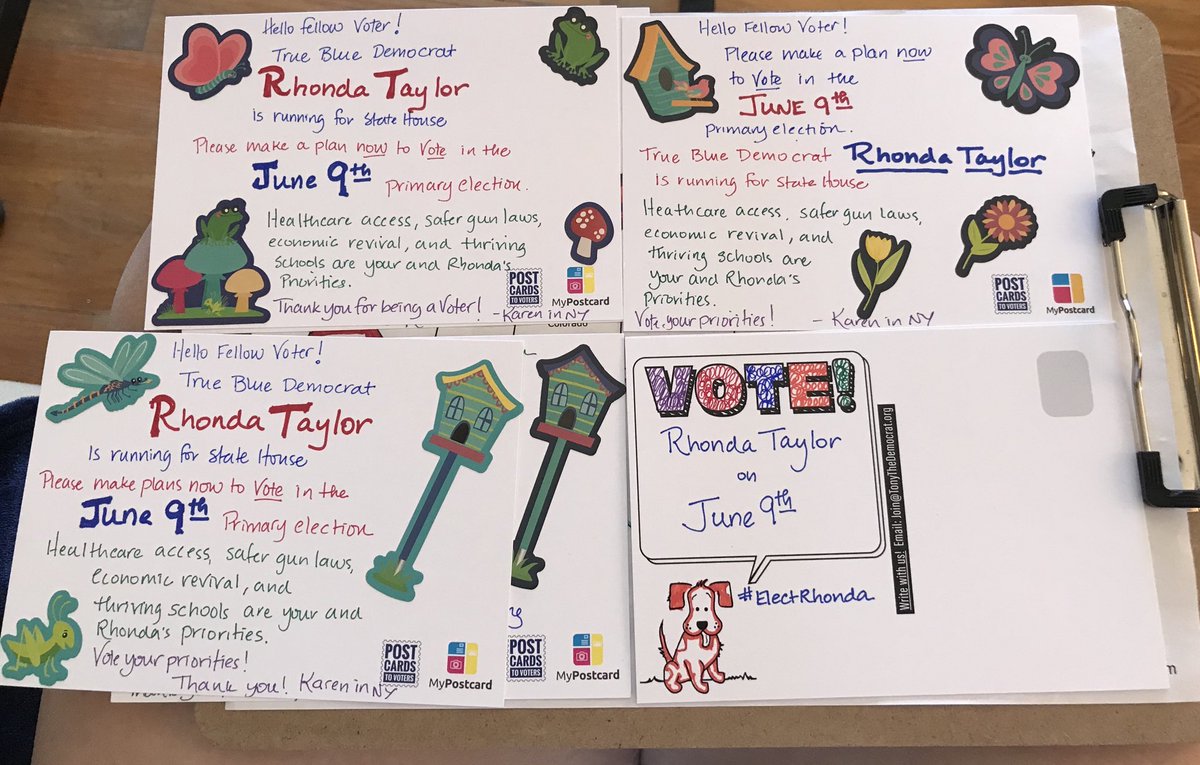 Hello Fellow Voter!
True Blue Democrat
Rhonda Taylor
is running for State House
Please make a plan now to Vote in the
June 9th primary election.
Healthcare access, safer gun laws,
economic revival, and thriving
Schools are your and Rhonda's
Priorities.
Thank you for being a Voter!
- Karen in NY
POST
CARDS
TO VOTERS
MyPostcard
Hello Fellow Voter!
Please make a plan now
to Vote in the
JUNE 9th
primary election.
True Blue Democrat Rhonda Taylor
is running for State House
Heathcare access, safer gun laws,
economic revival, and
thriving schools are
your and Rhonda's
Priorities.
Vote your priorities!
- Karen in NY
POST
CARDS
TO VOTERS
MyPostcard
Colorado
Hello Fellow Voter!
True Blue Democrat
Rhonda Taylor
Is running for State House
Please make plans now to Vote in the
June 9th Primary election
Healthcare access, safer gun laws,
economic revival, and
thriving schools are your and
Rhonda's priorities.
Vote your priorities!
Thank you! Karen in NY
POST
CARDS
TO VOTERS
MyPostcard
POST
CARDS
TO VOTERS
MyPostcard
VOTE!
Rhonda Taylor
on
June 9th
#ElectRhonda
Write with us! Email: Join@TonyTheDemocrat.org